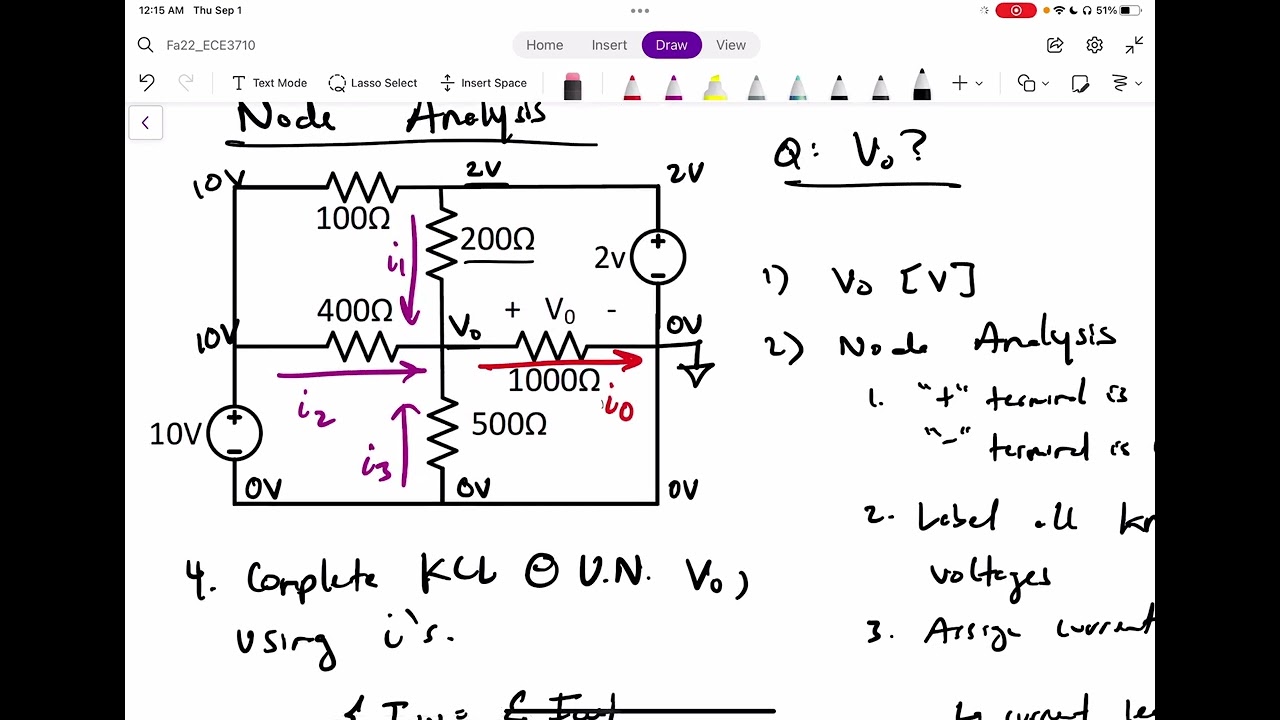 12:15 AM Thu Sep 1
51%
Fa22_ECE3710
Home Insert Draw View
Text Mode Lasso Select Insert Space
Node Analysis
Q: V₀?
10V
2V
2V
100Ω
200Ω
i₁
2v
+
-
400Ω
10V
V₀
+ V₀ -
0V
1000Ω
i₂
i₀
10V
+
-
500Ω
i₃
0V
0V
0V
1) V₀ [V]
2) Node Analysis
1. "+" terminal is
"-" terminal is
2. Label all kn
voltages
3. Assign current
↳ current le
4. Complete KCL @ U.N. V₀,
using i's.